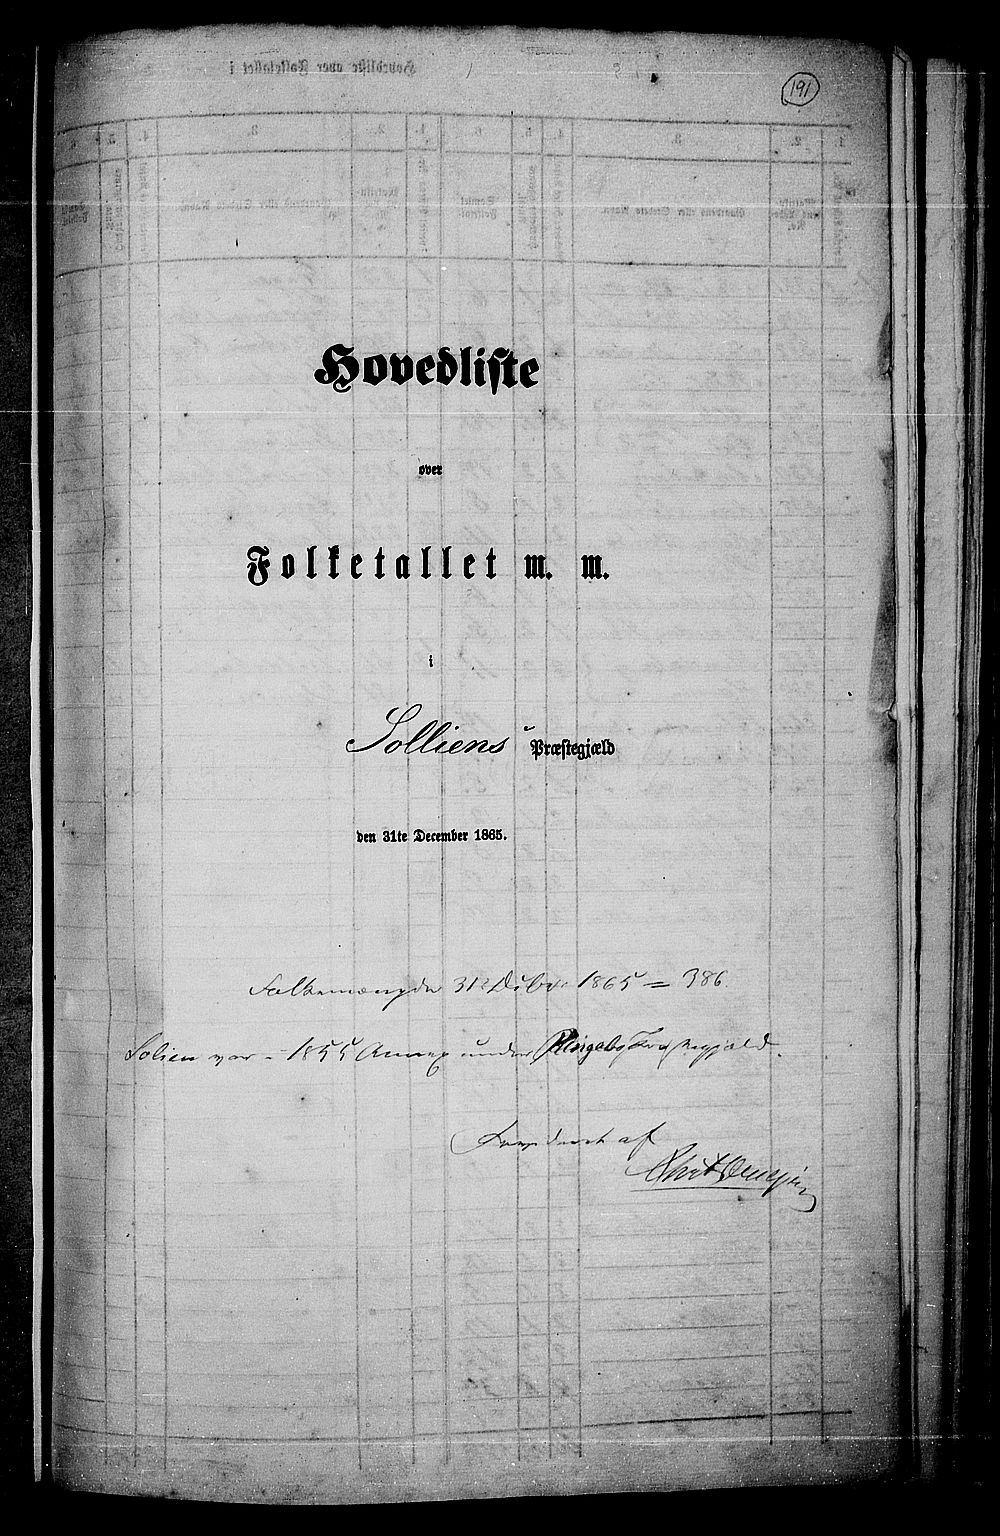 191
Hovedliste
over
Folketallet m. m.
i
Solliens Præstegjæld
den 31te December 1865.
Folkemængde 31 Decbr 1865 = 386
Solien var i 1855 Annex under Ringebo Præstegjæld.
af